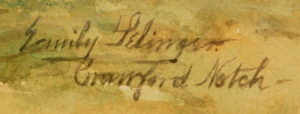 Emily Selinger
Crawford Notch –